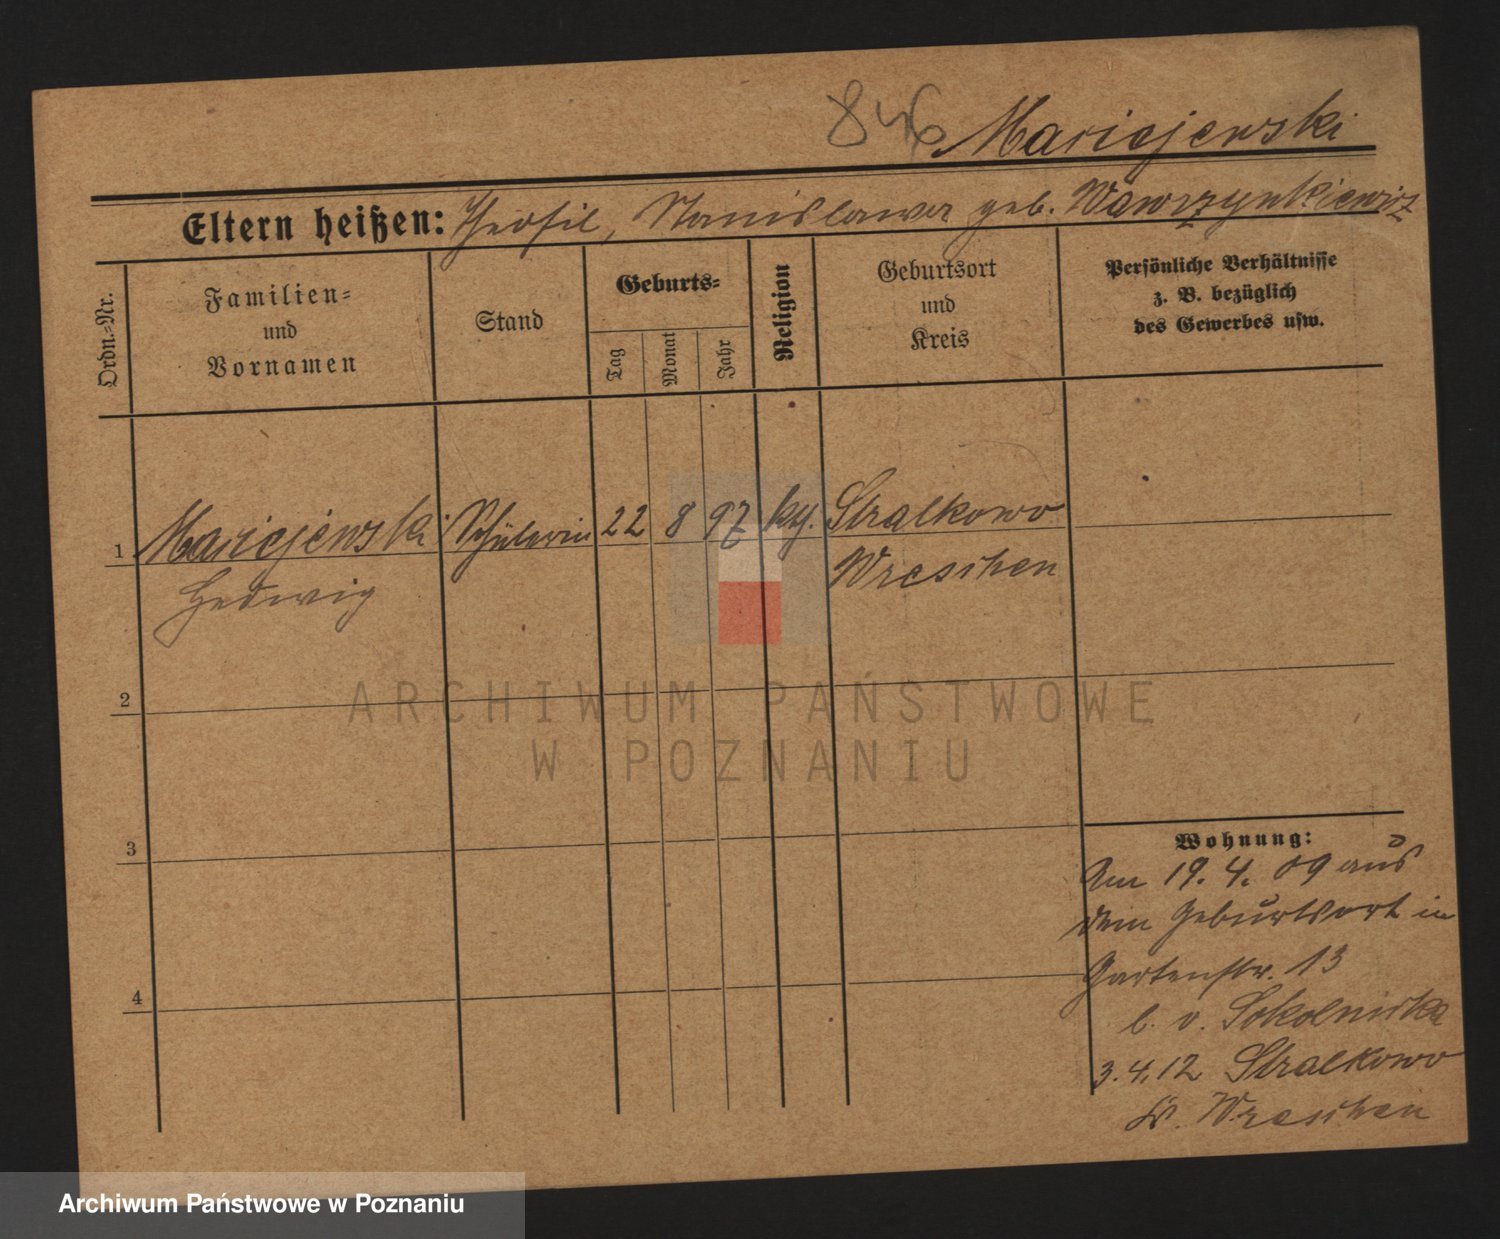 846 Maricjewski
Eltern heißen: Theofil, Stanislawa geb. Wawrzynkiewicz
Ordn.-Nr.
Familien-
und
Vornamen
Stand
Geburts-
Tag
Monat
Jahr
Religion
Geburtsort
und
Kreis
Persönliche Verhältnisse
z. B. bezüglich
des Gewerbes usw.
1 Maricjewski Schülerin 22 8 97 kth. Stralkowo
Hedwig Wreschen
2
3
4
Wohnung:
Am 19. 4. 09 aus
dem Geburtsort in
Gartenstr. 13
b. v. Sokolnicka
3.4.12 Stralkowo
Kr. Wreschen
ARCHIWUM PAŃSTWOWE
W POZNANIU
Archiwum Państwowe w Poznaniu